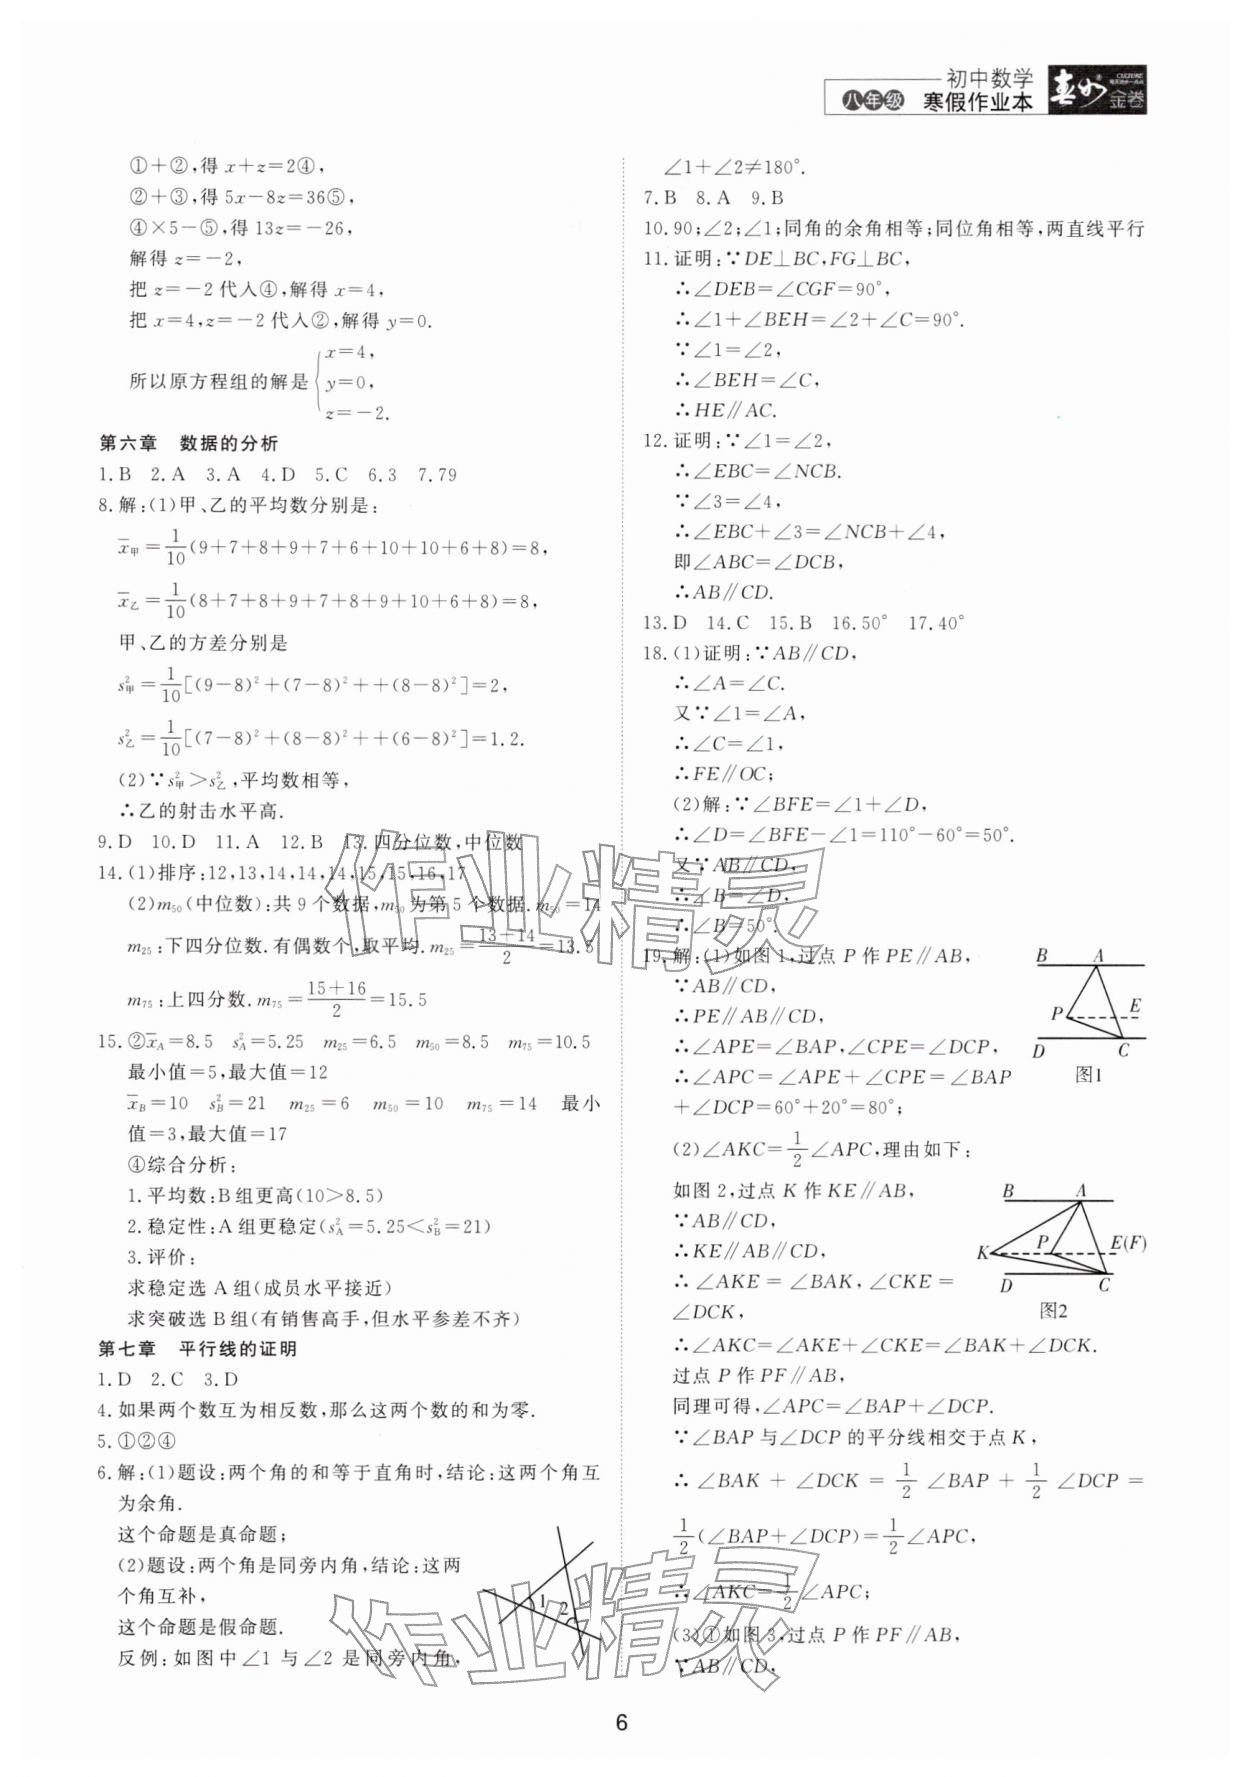 初中数学
八年级 寒假作业本
CULTURE
金卷
①+②,得 x+z=2④,
②+③,得 5x-8z=36⑤,
④×5-⑤,得 13z=-26,
解得 z=-2,
把 z=-2 代入④,解得 x=4,
把 x=4,z=-2 代入②,解得 y=0.
x=4,
所以原方程组的解是 y=0,
z=-2.
第六章 数据的分析
1.B 2.A 3.A 4.D 5.C 6.3 7.79
8.解:(1)甲、乙的平均数分别是:
x̄甲=1/10(9+7+8+9+7+6+10+10+6+8)=8,
x̄乙=1/10(8+7+8+9+7+8+9+10+6+8)=8,
甲、乙的方差分别是
s²甲=1/10[(9-8)²+(7-8)²++(8-8)²]=2,
s²乙=1/10[(7-8)²+(8-8)²++(6-8)²]=1.2.
(2)∵s²甲>s²乙,平均数相等,
∴乙的射击水平高.
9.D 10.D 11.A 12.B 13.四分位数,中位数
14.(1)排序:12,13,14,14,14,15,15,16,17
(2)m₅₀(中位数):共 9 个数据,m₅₀为第 5 个数据.m₅₀=14
m₂₅:下四分位数.有偶数个,取平均.m₂₅=(13+14)/2=13.5
m₇₅:上四分数.m₇₅=(15+16)/2=15.5
15.②x̄A=8.5 s²A=5.25 m₂₅=6.5 m₅₀=8.5 m₇₅=10.5
最小值=5,最大值=12
x̄B=10 s²B=21 m₂₅=6 m₅₀=10 m₇₅=14 最小
值=3,最大值=17
④综合分析:
1.平均数:B 组更高(10>8.5)
2.稳定性:A 组更稳定(s²A=5.25<s²B=21)
3.评价:
求稳定选 A 组(成员水平接近)
求突破选 B 组(有销售高手,但水平参差不齐)
第七章 平行线的证明
1.D 2.C 3.D
4.如果两个数互为相反数,那么这两个数的和为零.
5.①②④
6.解:(1)题设:两个角的和等于直角时,结论:这两个角互
为余角.
这个命题是真命题;
(2)题设:两个角是同旁内角,结论:这两
个角互补,
这个命题是假命题.
反例:如图中∠1 与∠2 是同旁内角,
1 2
∠1+∠2≠180°.
7.B 8.A 9.B
10.90;∠2;∠1;同角的余角相等;同位角相等,两直线平行
11.证明:∵DE⊥BC,FG⊥BC,
∴∠DEB=∠CGF=90°,
∴∠1+∠BEH=∠2+∠C=90°.
∵∠1=∠2,
∴∠BEH=∠C,
∴HE∥AC.
12.证明:∵∠1=∠2,
∴∠EBC=∠NCB.
∵∠3=∠4,
∴∠EBC+∠3=∠NCB+∠4,
即∠ABC=∠DCB,
∴AB∥CD.
13.D 14.C 15.B 16.50° 17.40°
18.(1)证明:∵AB∥CD,
∴∠A=∠C.
又∵∠1=∠A,
∴∠C=∠1,
∴FE∥OC;
(2)解:∵∠BFE=∠1+∠D,
∴∠D=∠BFE-∠1=110°-60°=50°.
又∵AB∥CD,
∴∠B=∠D,
∴∠B=50°.
19.解:(1)如图 1,过点 P 作 PE∥AB,
∵AB∥CD,
∴PE∥AB∥CD,
∴∠APE=∠BAP,∠CPE=∠DCP,
∴∠APC=∠APE+∠CPE=∠BAP
+∠DCP=60°+20°=80°;
B A
P E
D C
图1
(2)∠AKC=1/2∠APC,理由如下:
如图 2,过点 K 作 KE∥AB,
∵AB∥CD,
∴KE∥AB∥CD,
∴∠AKE=∠BAK,∠CKE=
∠DCK,
B A
K P E(F)
D C
图2
∴∠AKC=∠AKE+∠CKE=∠BAK+∠DCK.
过点 P 作 PF∥AB,
同理可得,∠APC=∠BAP+∠DCP.
∵∠BAP 与∠DCP 的平分线相交于点 K,
∴∠BAK+∠DCK=1/2∠BAP+1/2∠DCP=
1/2(∠BAP+∠DCP)=1/2∠APC,
∴∠AKC=1/2∠APC;
(3)①如图 3,过点 P 作 PF∥AB,
∵AB∥CD,
作业精灵
作业精灵
6